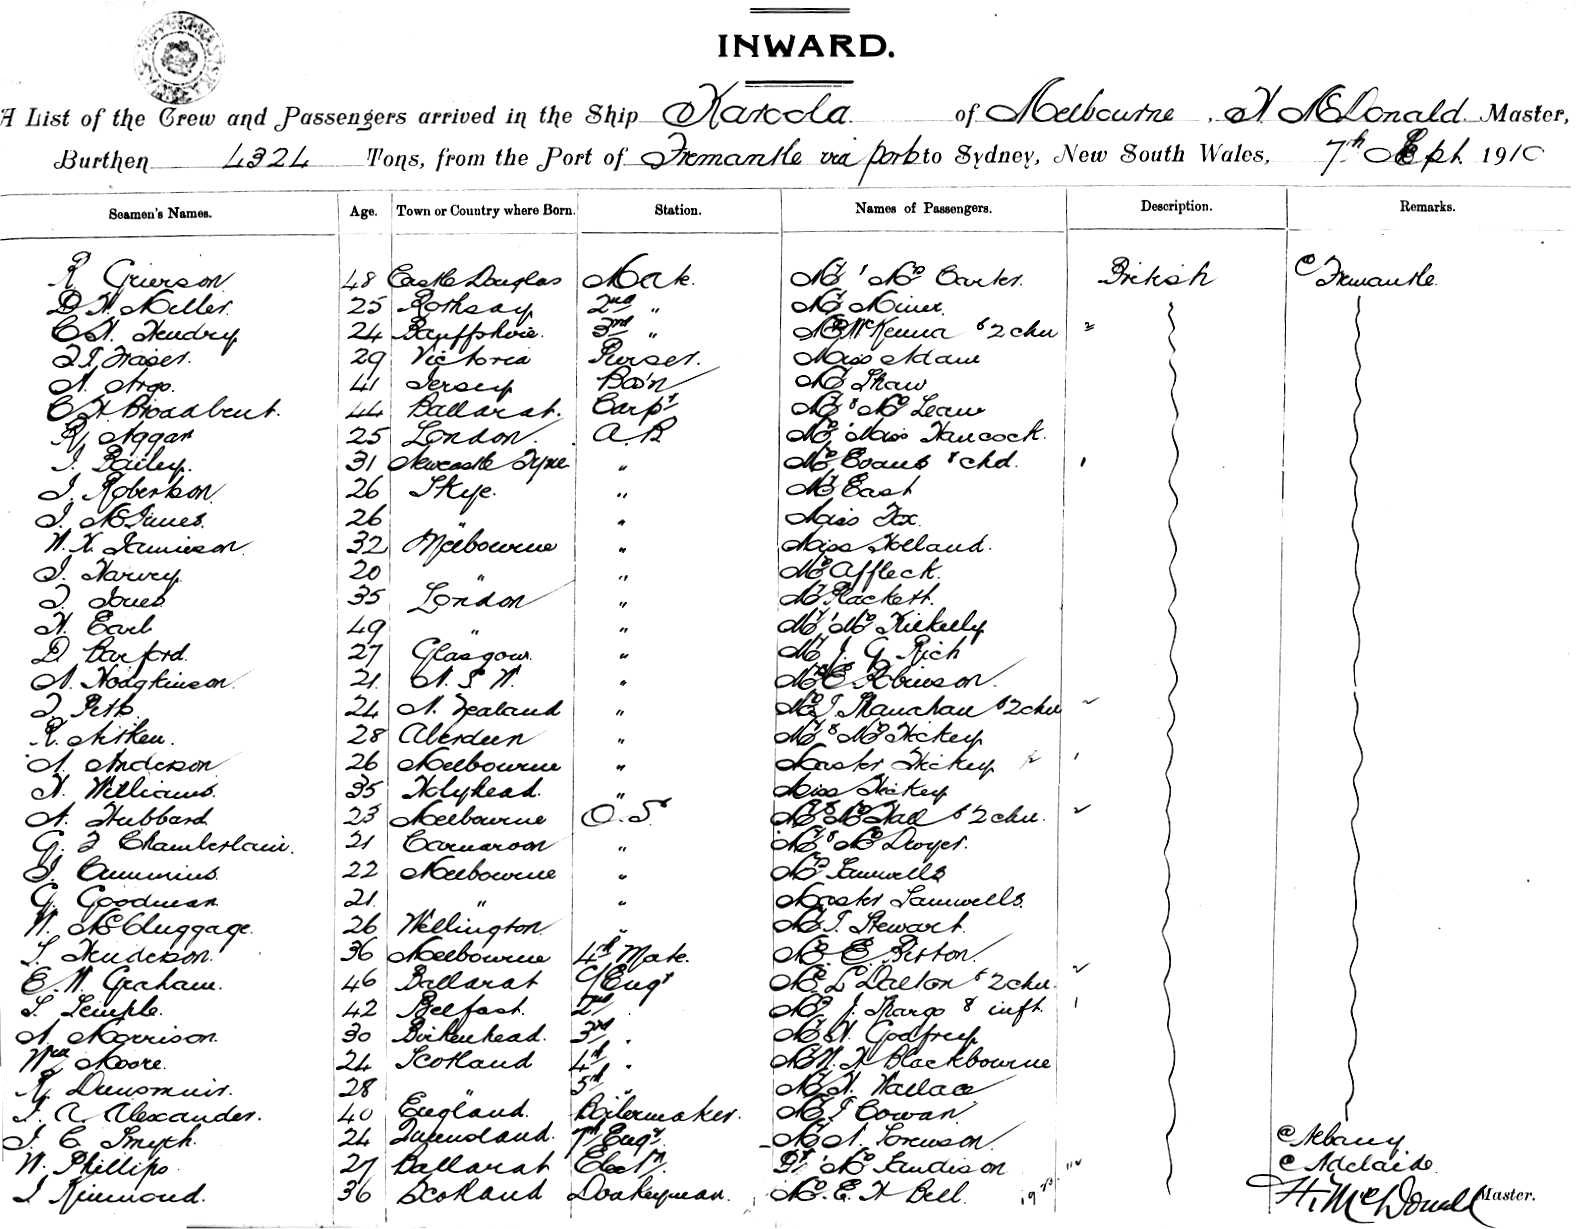 INWARD.
A List of the Crew and Passengers arrived in the Ship Karoola of Melbourne, H. McDonald Master,
Burthen 4324 Tons, from the Port of Fremantle via ports to Sydney, New South Wales, 7th Sept. 1910
Seamen's Names. Age. Town or Country where Born. Station. Names of Passengers. Description. Remarks.
R. Grierson 48 Castle Douglas Mate. Mr & Mrs Carter. British @ Fremantle.
D. H. Miller. 25 Rothsay 2nd " Mr Miner.
C. H. Hendry 24 Banffshire. 3rd " McKenna & 2 chn 2
Fraser. 29 Victoria Purser. Miss Adam
A. Argo. 41 Jersey Bos'n Mr Shaw
C. H. Broadbent. 44 Ballarat. Carpr Mr & Mrs Leaw
R. Aggar 25 London. A.B Miss Hancock.
J. Bailey. 31 Newcastle Tyne " Mrs Evans & chd. 1
J. Robertson 26 Skye. " Mr East
J. McInnes. 26 " " Miss Fox.
W. H. Jamieson. 32 Melbourne " Miss Holland.
J. Harvey. 20 " " Mr Affleck.
J. Jones 35 London " Mr Plackett.
H. Earl 49 " " Mr & Mrs Kickelly
D. Barford. 27 Glasgow. " Mr J. G. Rich
A. Hodgkinson. 21. N. S. W. " E. Robinson.
24 N. Zealand " Shanahan & 2 chn
R. Aitken. 28 Aberdeen " Mr & Mrs Hickey
A. Anderson 26 Melbourne " Master Hickey 1
H. Williams. 35 Holyhead. " Miss Hickey
A. Hubbard 23 Melbourne O.S. Mr & Mrs Hall & 2 chn.
G. F. Chamberlain. 21 Carnarvon " Mr & Mrs Dwyer.
J. Cummins. 22 Melbourne " Mrs Samwells
G. Goodman 21. " " Master Samwells.
W. McCluggage. 26 Wellington. " Stewart.
Henderson. 36 Melbourne 4th Mate. E. Bitton.
E. W. Graham. 46 Ballarat C/Engr Dalton & 2 chn.
Temple. 42 Belfast. 2nd J. Shargo & inft. 1
A. Morrison. 30 Birkenhead. 3rd " Mr H. Godfrey
Wm Moore. 24 Scotland 4th " H. Blackbourne
R. Dunsmuir. 28 " 5th " Mr H. Wallace
J. A. Alexander. 40 England. Boilermaker. Cowan
J. C. Smyth. 24 Queensland. 7th Engr. Mr A. Lorenson. @ Albany
W. Phillips 27 Ballarat Electn. Dr & Mrs Sandison @ Adelaide.
J. Kinmond. 36 Scotland Donkeyman. E. H. Bell. H. McDonald Master.